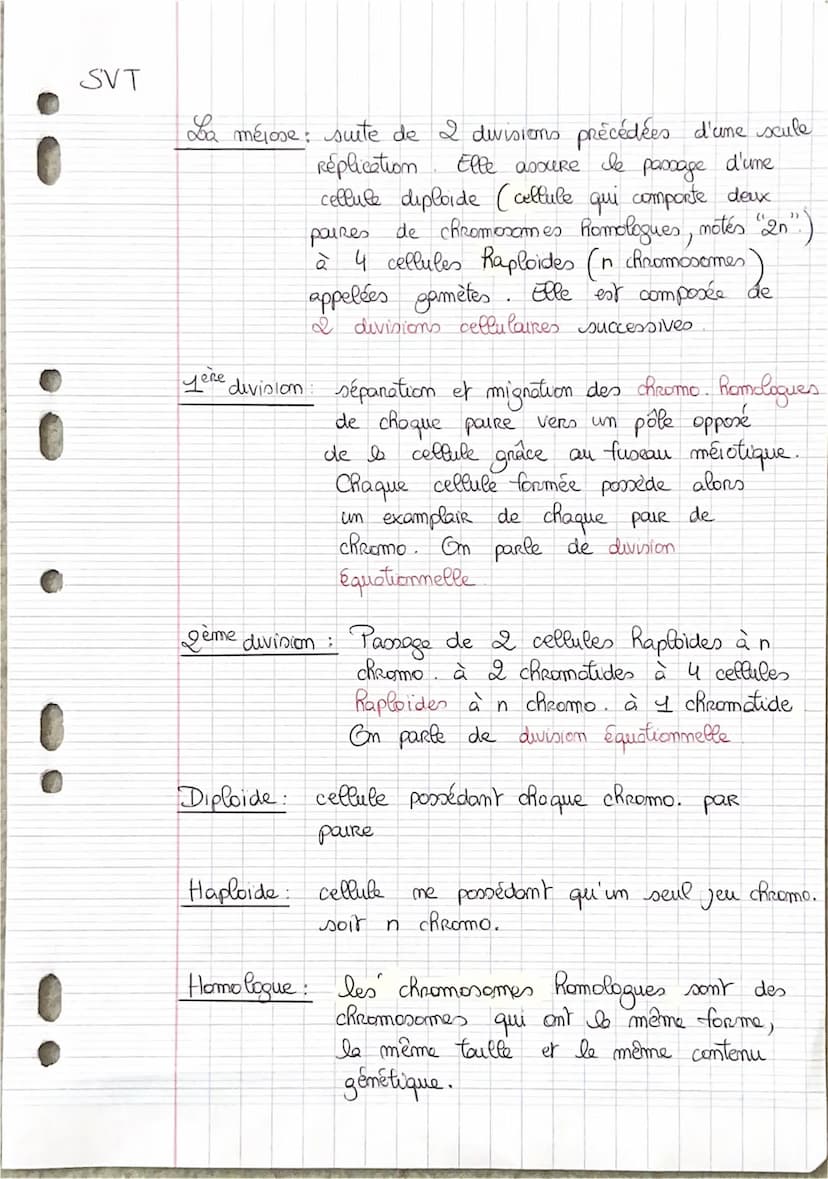 SVT
La méiose : suite de 2 divisions précédées d'une seule
réplication. Elle assure le passage d'une
cellule diploide (cellule qui comporte deux
paires de chromosomes homologues, notés "2n")
à 4 cellules haploides (n chromosomes)
appelées gamètes. Elle est composée de
2 divisions cellulaires successives.
1ère division : séparation et migration des chromo. homologues
de chaque paire vers un pôle opposé
de la cellule grâce au fuseau méiotique.
Chaque cellule formée possède alors
un examplair de chaque pair de
chromo. On parle de division
équationnelle
2ème division : Passage de 2 cellules haploïdes à n
chromo. à 2 chromatides à 4 cellules
haploïdes à n chromo. à 1 chromatide
On parle de division équationnelle
Diploïde : cellule possédant chaque chromo. par
paire
Haploïde : cellule ne possédant qu'un seul jeu chromo.
soit n chromo.
Homologue : les chromosomes homologues sont des
chromosomes qui ont la même forme,
la même taille et le même contenu
génétique.